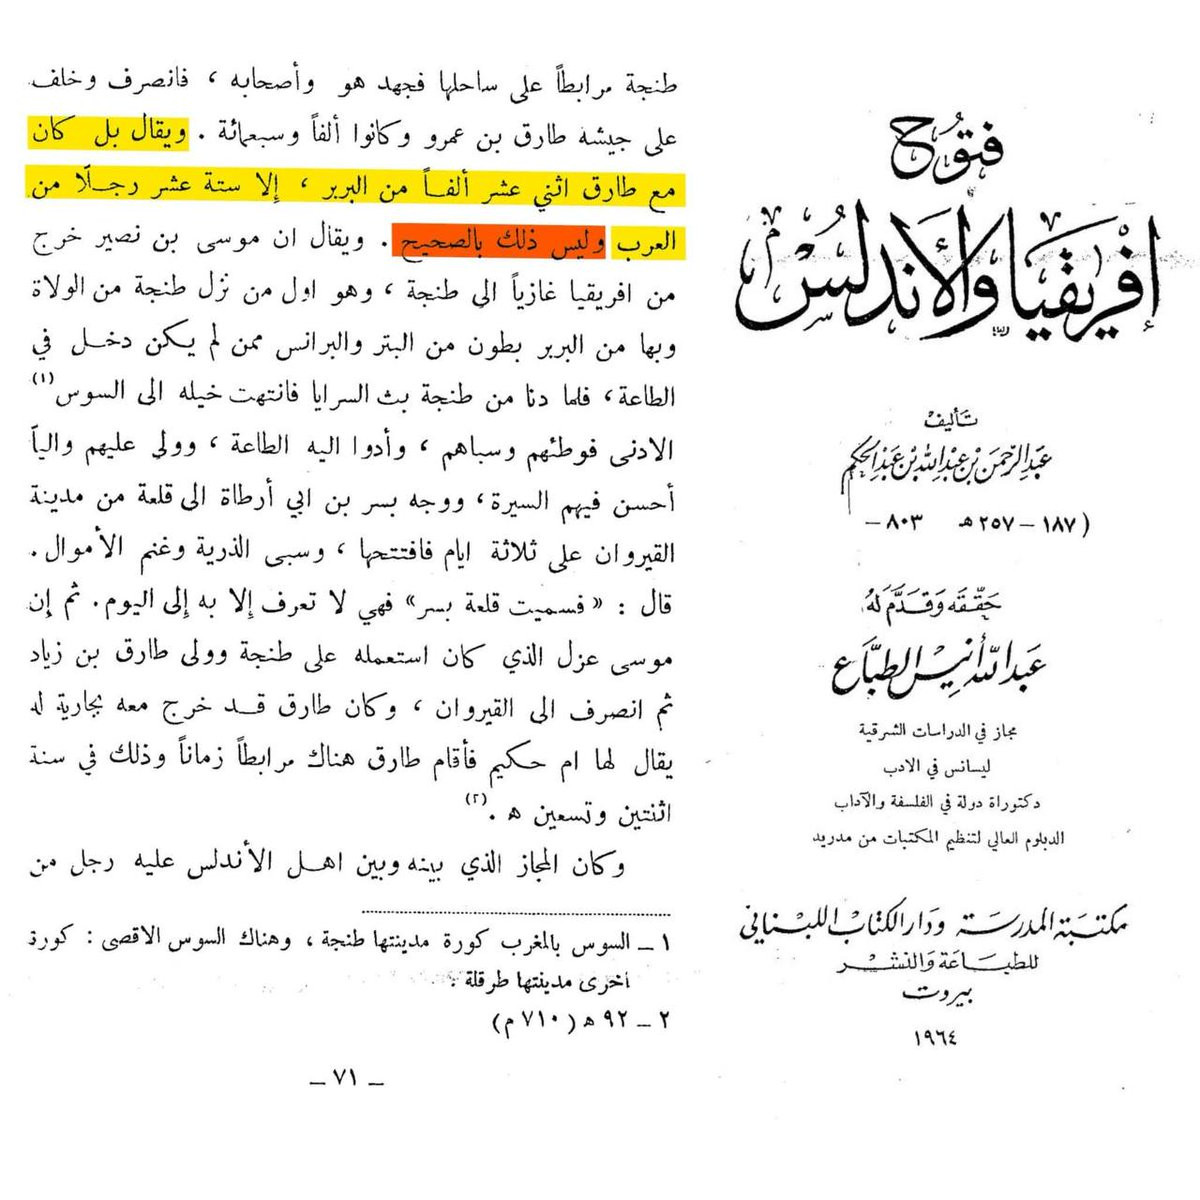 فتوح
إفريقيا والأندلس
تأليف
عبد الرحمن بن عبد الله بن عبد الحكم
( ١٨٧ – ٢٥٧ هـ ٨٠٣ –
حققه وقدم له
عبد الله أنيس الطباع
مجاز في الدراسات الشرقية
ليسانس في الادب
دكتوراة دولة في الفلسفة والآداب
الدبلوم العالي لتنظيم المكتبات من مدريد
مكتبة المدرسة ودار الكتاب اللبناني
للطباعة والنشر
بيروت
١٩٦٤
طنجة مرابطاً على ساحلها فجهد هو وأصحابه ، فانصرف وخلف
على جيشه طارق بن عمرو وكانوا ألفاً وسبعمائة . ويقال بل كان
مع طارق اثني عشر ألفاً من البربر ، إلا ستة عشر رجلًا من
العرب وليس ذلك بالصحيح . ويقال ان موسى بن نصير خرج
من افريقيا غازياً الى طنجة ، وهو اول من نزل طنجة من الولاة
وبها من البربر بطون من البتر والبرانس ممن لم يكن دخل في
الطاعة، فلما دنا من طنجة بث السرايا فانتهت خيله الى السوس(١)
الادنى فوطئهم وسباهم ، وأدوا اليه الطاعة ، وولي عليهم والياً
أحسن فيهم السيرة، ووجه بسر بن ابي أرطاة الى قلعة من مدينة
القيروان على ثلاثة ايام فافتتحها ، وسبى الذرية وغنم الأموال.
قال : « فسميت قلعة بسر» فهي لا تعرف إلا به إلى اليوم. ثم إن
موسى عزل الذي كان استعمله على طنجة وولى طارق بن زياد
ثم انصرف الى القيروان ، وكان طارق قد خرج معه بجارية له
يقال لها ام حكيم فأقام طارق هناك مرابطاً زماناً وذلك في سنة
اثنتين وتسعين ه .(٢)
وكان المجاز الذي بينه وبين اهل الأندلس عليه رجل من
١ – السوس بالمغرب كورة مدينتها طنجة ، وهناك السوس الاقصى : كورة
اخرى مدينتها طرقلة .
٢ – ٩٢ هـ (٧١٠ م)
– ٧١ –